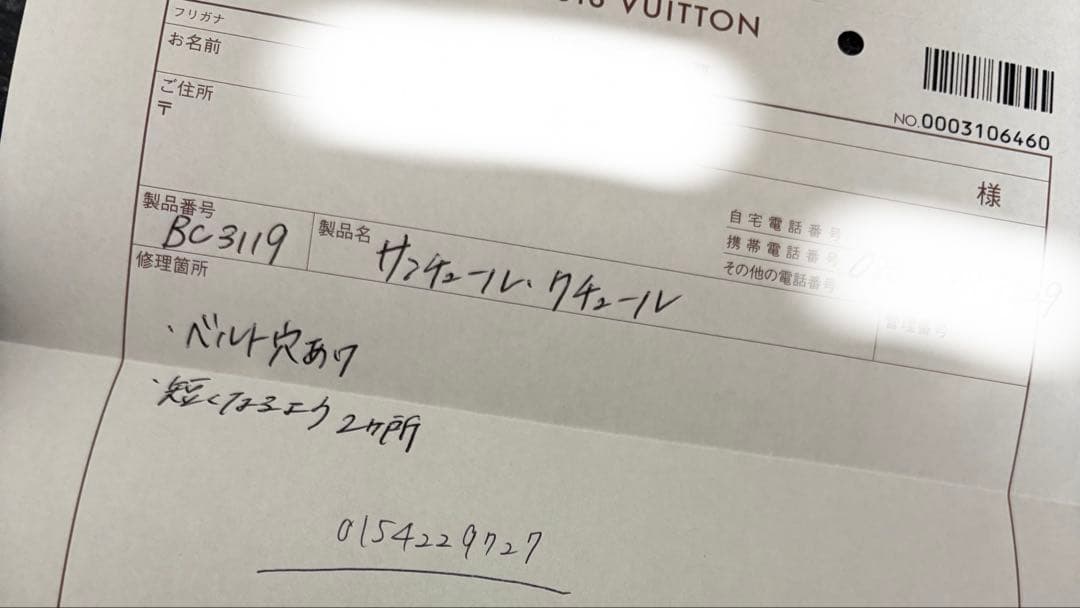 VUITTON
NO.0003106460
フリガナ
お名前
様
ご住所
〒
自宅電話番号
携帯電話番号
その他の電話番号
管理番号
製品番号
BC3119
製品名
サンチュール・クチュール
修理箇所
・ベルト穴あけ
・短くなるよう2ヶ所
0154229727